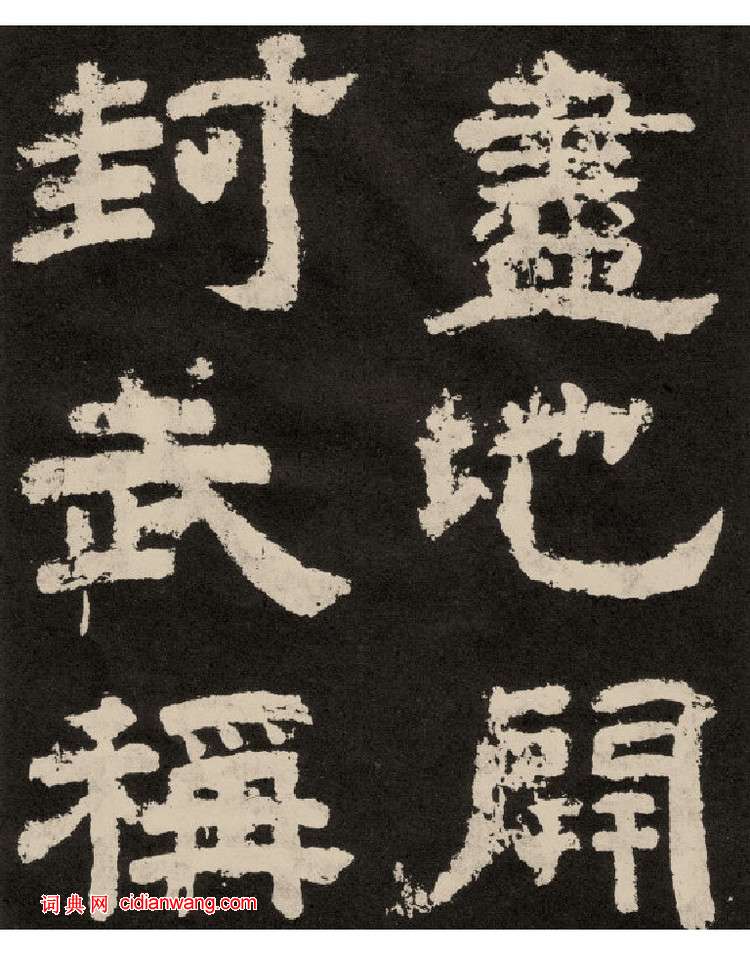 盡地開
封武稱
词典网 cidianwang.com